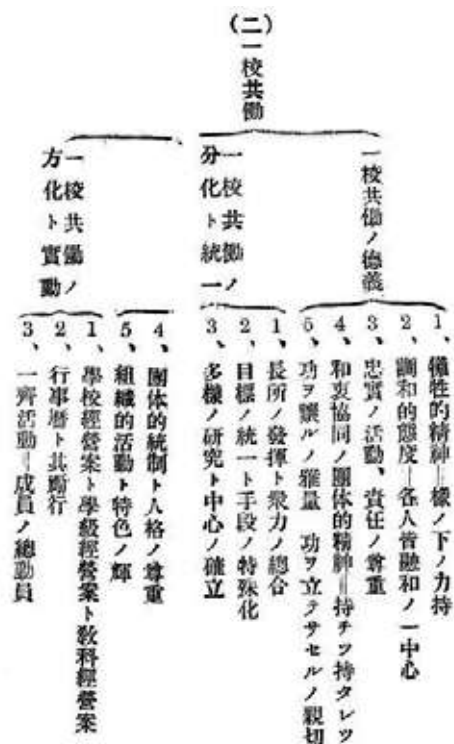 (二)一校共働
一校共働ノ德義
1、犧牲的精神=樣ノ下ノ力持
2、調和的態度=各人皆融和ノ一中心
3、忠實ノ活動、責任ノ尊重
4、和衷協同ノ團体的精神=持チツ持タレツ
5、功ヲ讓ルノ雅量 功ヲ立テサセルノ親切
一校共働ノ
分化ト統一
1、長所ノ發揮ト衆力ノ總合
2、目標ノ統一ト手段ノ特殊化
3、多樣ノ研究ト中心ノ確立
4、團体的統制ト人格ノ尊重
5、組織的活動ト特色ノ輝
一校共働ノ
方化ト實動
1、學校經營案ト學級經營案ト敎科經營案
2、行事曆ト其勵行
3、一齊活動=成員ノ總動員